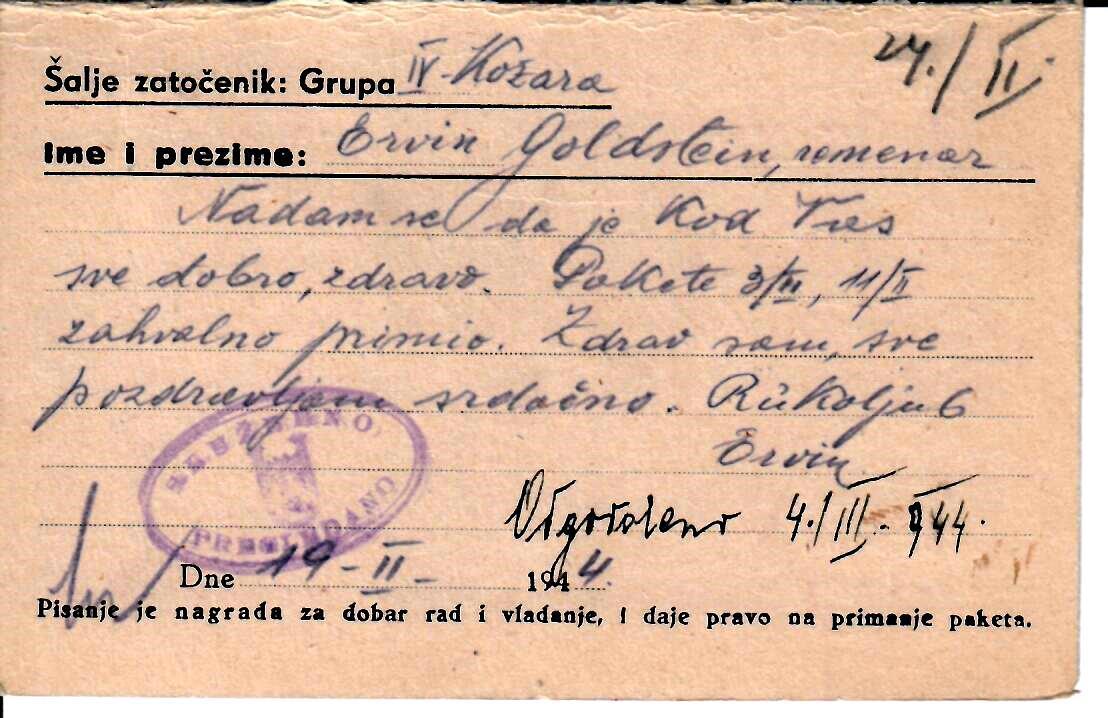 24./II.
Šalje zatočenik: Grupa IV-Kožara
Ime i prezime: Ervin Goldstein, remenar
Nadam se da je kod Vas
sve dobro, zdravo. Pakete 3/II, 11/II
zahvalno primio. Zdrav sam, sve
pozdravljam srdačno. Rukoljub
Ervin
SLUŽBENO
PREGLEDANO
Odgovoreno 4./III.-944.
Dne 19-II- 1944.
Pisanje je nagrada za dobar rad i vladanje, i daje pravo na primanje paketa.